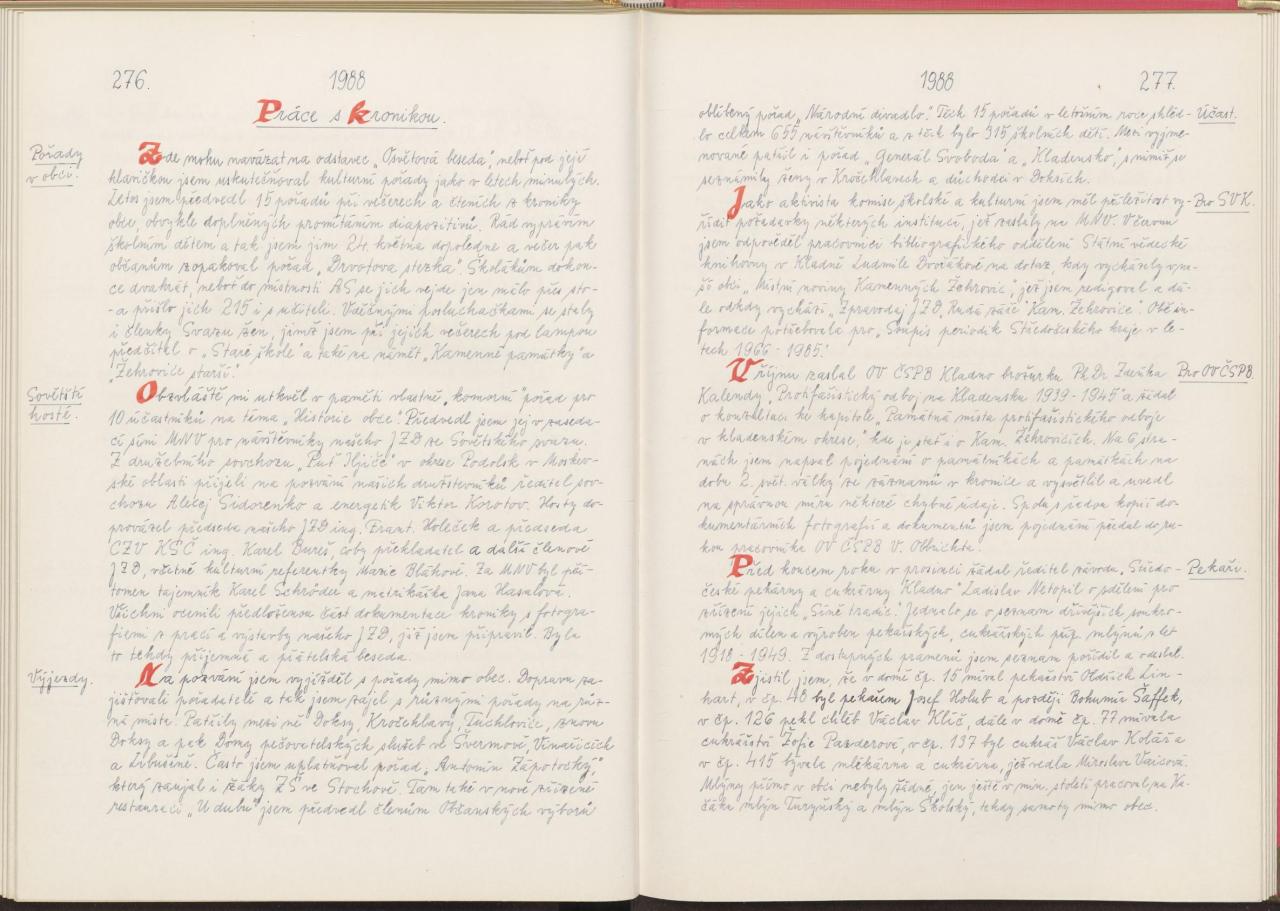 276.
1988
Práce s kronikou.
Pořady
v obci.
Zde mohu navázat na odstavec „Osvětová beseda", neboť pod její
hlavičkou jsem uskutečňoval kulturní pořady jako v letech minulých.
Letos jsem předvedl 15 pořadů při večerech a čteních z kroniky
obce, obvykle doplněných promítáním diapozitivů. Rád vyprávím
školním dětem a tak jsem jim 24. května dopoledne a večer pak
občanům zopakoval pořad „Drvotova stezka". Školákům dokon-
ce dvakrát, neboť do místnosti AS se jich vejde jen málo přes sto-
- a přišlo jich 215 i s učiteli. Vděčnými posluchačkami se staly
i členky Svazu žen, jimž jsem při jejich večerech pod lampou
předčítal o „Staré škole" a také na námět „Kamenné památky" a
„Žehrovice starší."
Sovětští
hosté.
Obzvláště mi utkvěl v paměti vlastně „komorní" pořad pro
10 účastníků na téma „Historie obce". Předvedl jsem jej v zaseda-
cí síni MNV pro návštěvníky našeho JZD ze Sovětského svazu.
Z družebního sovchozu „Puť Iljiče" v okrese Podolsk v Moskev-
ské oblasti přijeli na pozvání našich družstevníků ředitel sov-
chozu Alexej Sidorenko a energetik Viktor Korotov. Hosty do-
provázel předseda našeho JZD ing. Frant. Holeček a předseda
CZV KSČ ing. Karel Bureš, coby překladatel a další členové
JZD, včetně kulturní referentky Marie Bláhové. Za MNV byl pří-
tomen tajemník Karel Schröder a matrikářka Jana Hasalová.
Všichni ocenili předloženou část dokumentace kroniky s fotogra-
fiemi z prací a výstavby našeho JZD, jíž jsem připravil. Byla
to tehdy příjemná a přátelská beseda.
Výjezdy.
Na pozvání jsem vyjížděl s pořady mimo obec. Dopravu za-
jišťovali pořadatelé a tak jsem zajel s různými pořady na růz-
ná místa. Patřily mezi ně Doksy, Kročehlavy, Tuchlovice, znovu
Doksy a pak Domy pečovatelských služeb ve Švermově, Vinařicích
a Libušíně. Často jsem uplatňoval pořad „Antonín Zápotocký",
který zaujal i žáky ZŠ ve Stochově. Tam také v nově zřízené
restauraci „U dubu" jsem předvedl členům Občanských výborů
1988
277.
oblíbený pořad „Národní divadlo". Těch 15 pořadů v letošním roce shléd-
Účast.
lo celkem 655 návštěvníků a z těch bylo 315 školních dětí. Mezi vyjme-
nované patřil i pořad „Generál Svoboda" a „Kladensko", s nimiž se
seznámily ženy v Kročehlavech a důchodci v Doksích.
Jako aktivista komise školské a kulturní jsem měl příležitost vy-
Pro SVK.
řídit požadavky některých institucí, jež zaslaly na MNV. Včerami
jsem odpověděl pracovnici bibliografického oddělení Státní vědecké
knihovny v Kladně Ludmile Dvořákové na dotaz, kdy vycházely v na-
ší obci „Místní noviny Kamenných Žehrovic", jež jsem redigoval a dá-
le odkdy vychází „Zpravodaj JZD Rudá záře Kam. Žehrovice". Obě in-
formace potřebovala pro „Soupis periodik Středočeského kraje v le-
tech 1966 - 1985."
V říjnu zaslal OV ČSPB Kladno brožurku Ph Dr. Zdeňka
Pro OV ČSPB.
Kalendy „Protifašistický odboj na Kladensku 1939 - 1945" a žádal
o konzultaci ke kapitole „Památná místa protifašistického odboje
v kladenském okrese", kde je stať i o Kam. Žehrovicích. Na 6 stra-
nách jsem napsal pojednání o památnících a památkách na
dobu 2. svět. války ze záznamů v kronice a vysvětlil a uvedl
na správnou míru některé chybné údaje. Spolu s řadou kopií do-
kumentárních fotografií a dokumentů jsem pojednání předal do ru-
kou pracovníka OV ČSPB V. Olbrichta.
Před koncem roku v prosinci žádal ředitel závodu „Středo-
Pekaři.
české pekárny a cukrárny Kladno" Ladislav Netopil o sdělení pro
zřízení jejich „Síně tradic". Jednalo se o seznam dřívějších soukro-
mých dílen a výroben pekařských, cukrářských příp. mlýnů z let
1918 - 1949. Z dostupných pramenů jsem seznam pořídil a odeslal.
Zjistil jsem, že v domě čp. 15 míval pekařství Oldřich Lin-
hart, v čp. 48 byl pekařem Josef Holub a později Bohumír Šaffek,
v čp. 126 pekl chléb Václav Klíč, dále v domě čp. 77 mívala
cukrářství Žofie Pazderová, v čp. 137 byl cukrář Václav Kolář a
v čp. 415 bývala mlékárna a cukrárna, jež vedla Miroslava Vaicová.
Mlýny přímo v obci nebyly žádné, jen ještě v min. století pracoval na Ka-
čáku mlýn Turyňský a mlýn Školský, tehdy samoty mimo obec.